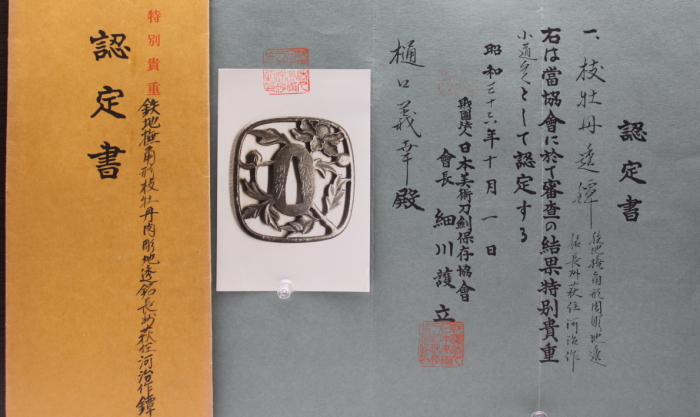 認定書
一、枝牡丹透鐔
鉄地撫角形肉彫地透
銘長州萩住河治作
右は當協會に於て審査の結果特別貴重
小道具として認定する
昭和三十六年十月一日
財團法人日本美術刀劍保存協會
會長 細川護立
樋口義幸殿
特別貴重
認定書
鉄地撫角形枝牡丹肉彫地透銘長州萩住河治作鐔